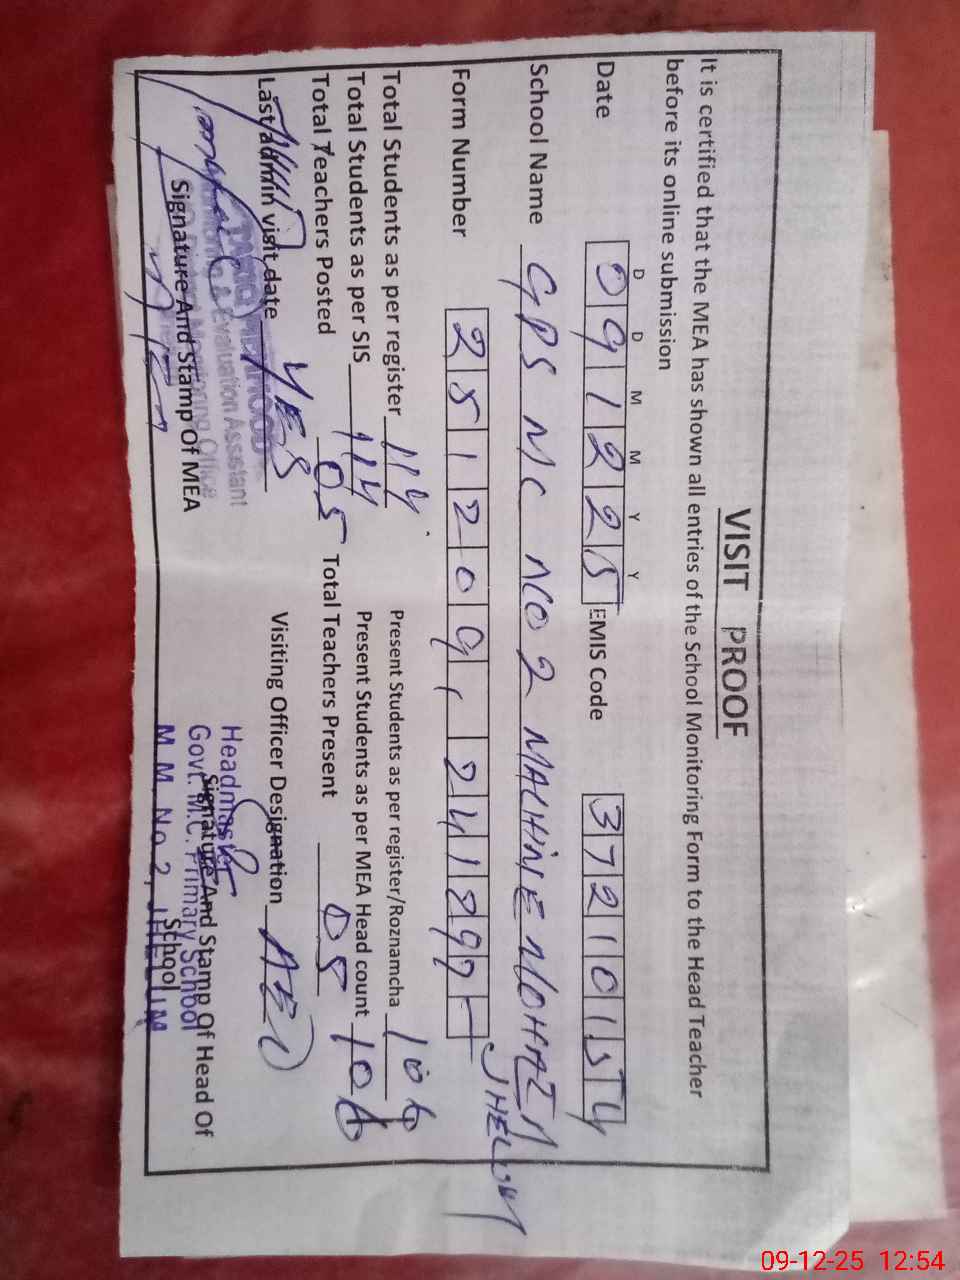 VISIT PROOF
It is certified that the MEA has shown all entries of the School Monitoring Form to the Head Teacher
before its online submission
D D M M Y Y
Date 091225 EMIS Code 37210154
School Name GPS MC NO 2 MACHINE MOHALLA
JHELUM
Form Number 2512091241
Total Students as per register 114 Present Students as per register/Roznamcha 106
Total Students as per SIS 114 Present Students as per MEA Head count 106
Total Teachers Posted 05 Total Teachers Present 05
Last admin visit date YES Visiting Officer Designation AEO
Monitoring & Evaluation Assistant
Monitoring Office
Signature And Stamp Of MEA
Signature And Stamp Of Head Of
School
Headmaster
Govt. M.C. Primary School
M.M. No. 2, JHELUM
09-12-25 12:54